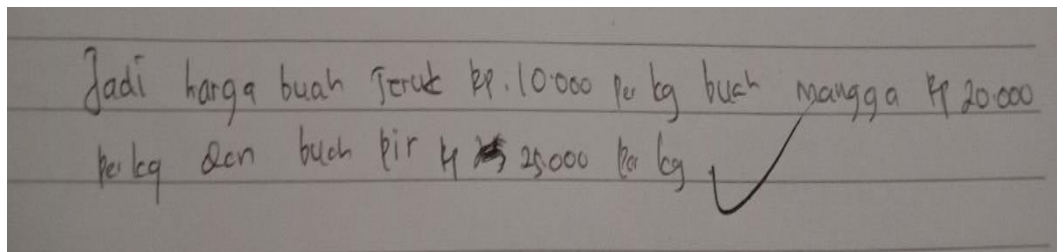 Jadi harga buah Jeruk Rp. 10.000 Per kg buah mangga Rp 20.000
Per kg dan buah Pir Rp 25.000 Per kg